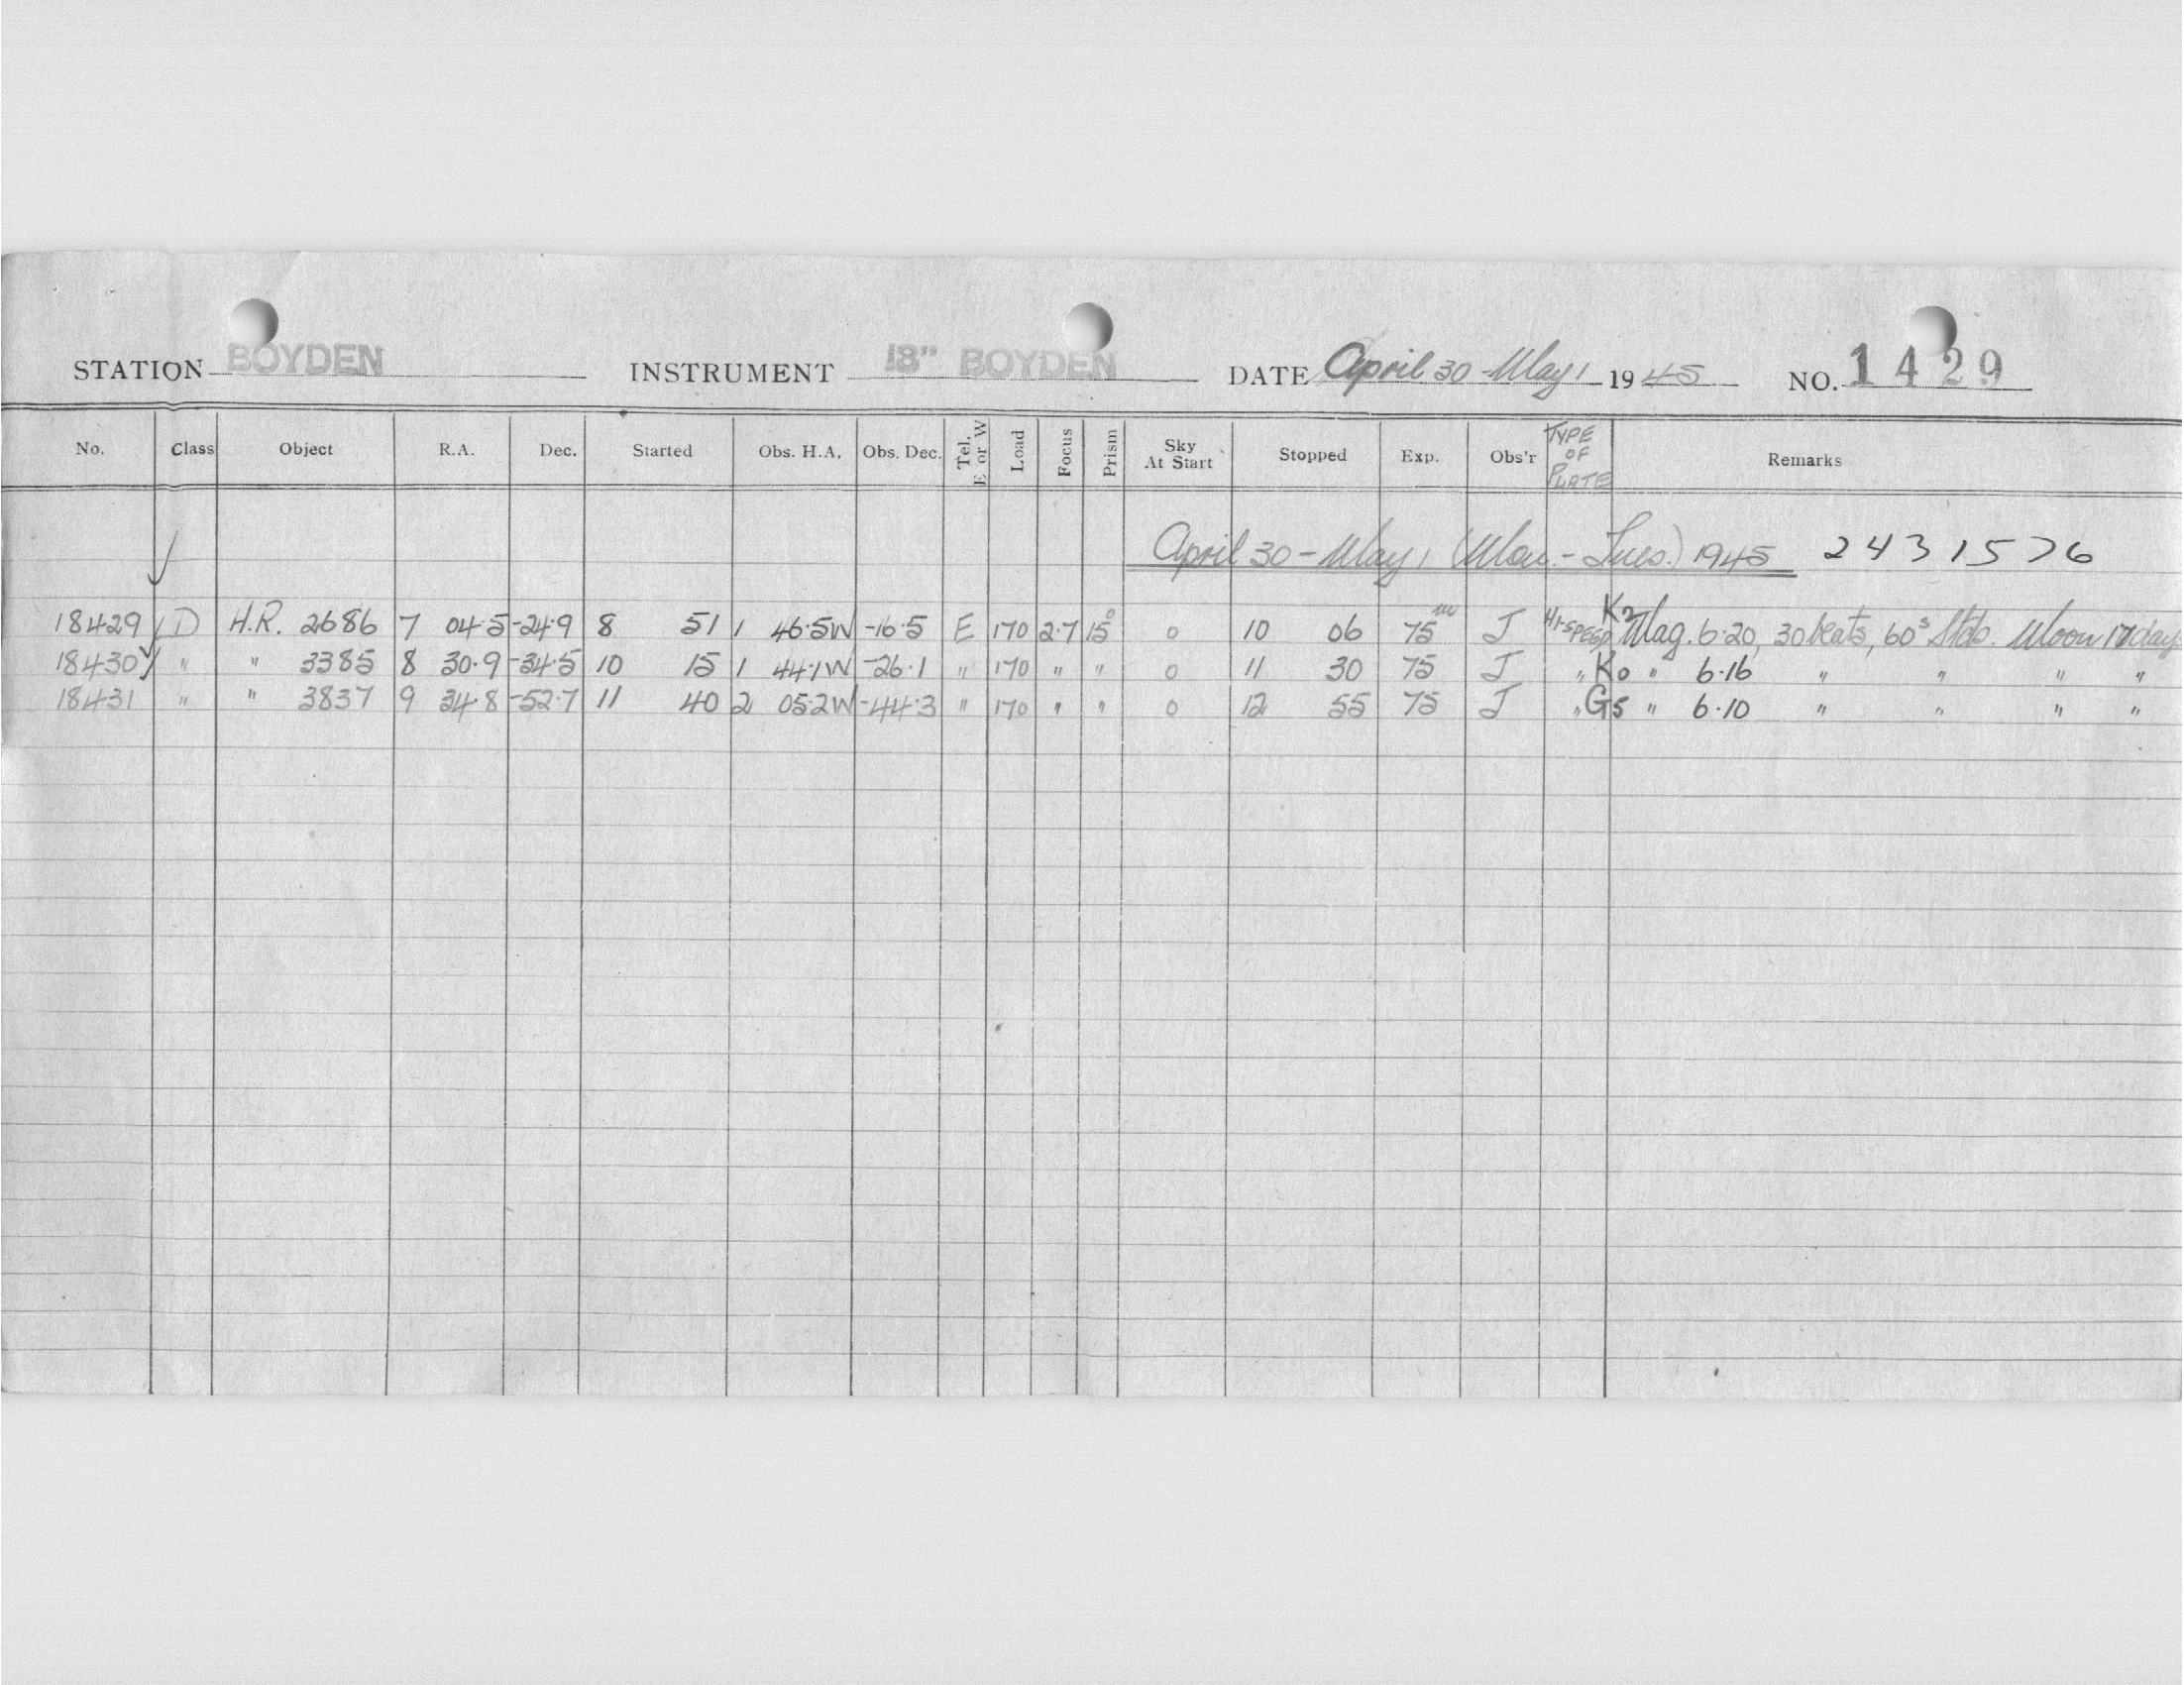 STATION BOYDEN INSTRUMENT 18" BOYDEN DATE April 30 - May 1 1945 NO. 1429
No. Class Object R.A. Dec. Started Obs. H.A. Obs. Dec. Tel. E or W Load Focus Prism Sky At Start Stopped Exp. Obs'r TYPE OF PLATE Remarks
April 30 - May 1 (Mon. - Tues.) 1945 2431576
18429 D H.R. 2686 7 04.5 -24.9 8 51 1 46.5W -16.5 E 170 2.7 15° 0 10 06 75m J HI-SPEED K2 Mag. 6.20, 30 beats, 60s Stds. Moon 17 days
18430 " " 3385 8 30.9 -34.5 10 15 1 44.1W -26.1 " 170 " " 0 11 30 75 J " K0 " 6.16 " " " "
18431 " " 3837 9 34.8 -52.7 11 40 2 05.2W -44.3 " 170 " " 0 12 55 75 J " G5 " 6.10 " " " "